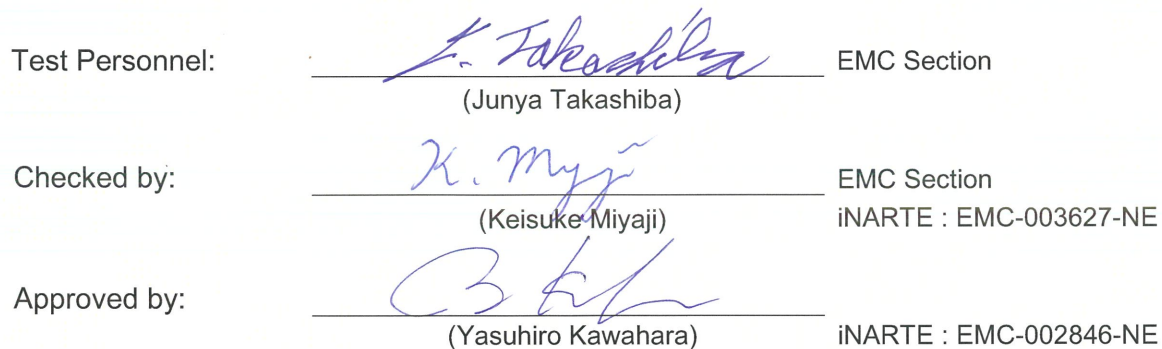 Test Personnel: J. Takashiba EMC Section
(Junya Takashiba)
Checked by: K. Myji EMC Section
(Keisuke Miyaji) iNARTE : EMC-003627-NE
Approved by:
(Yasuhiro Kawahara) iNARTE : EMC-002846-NE